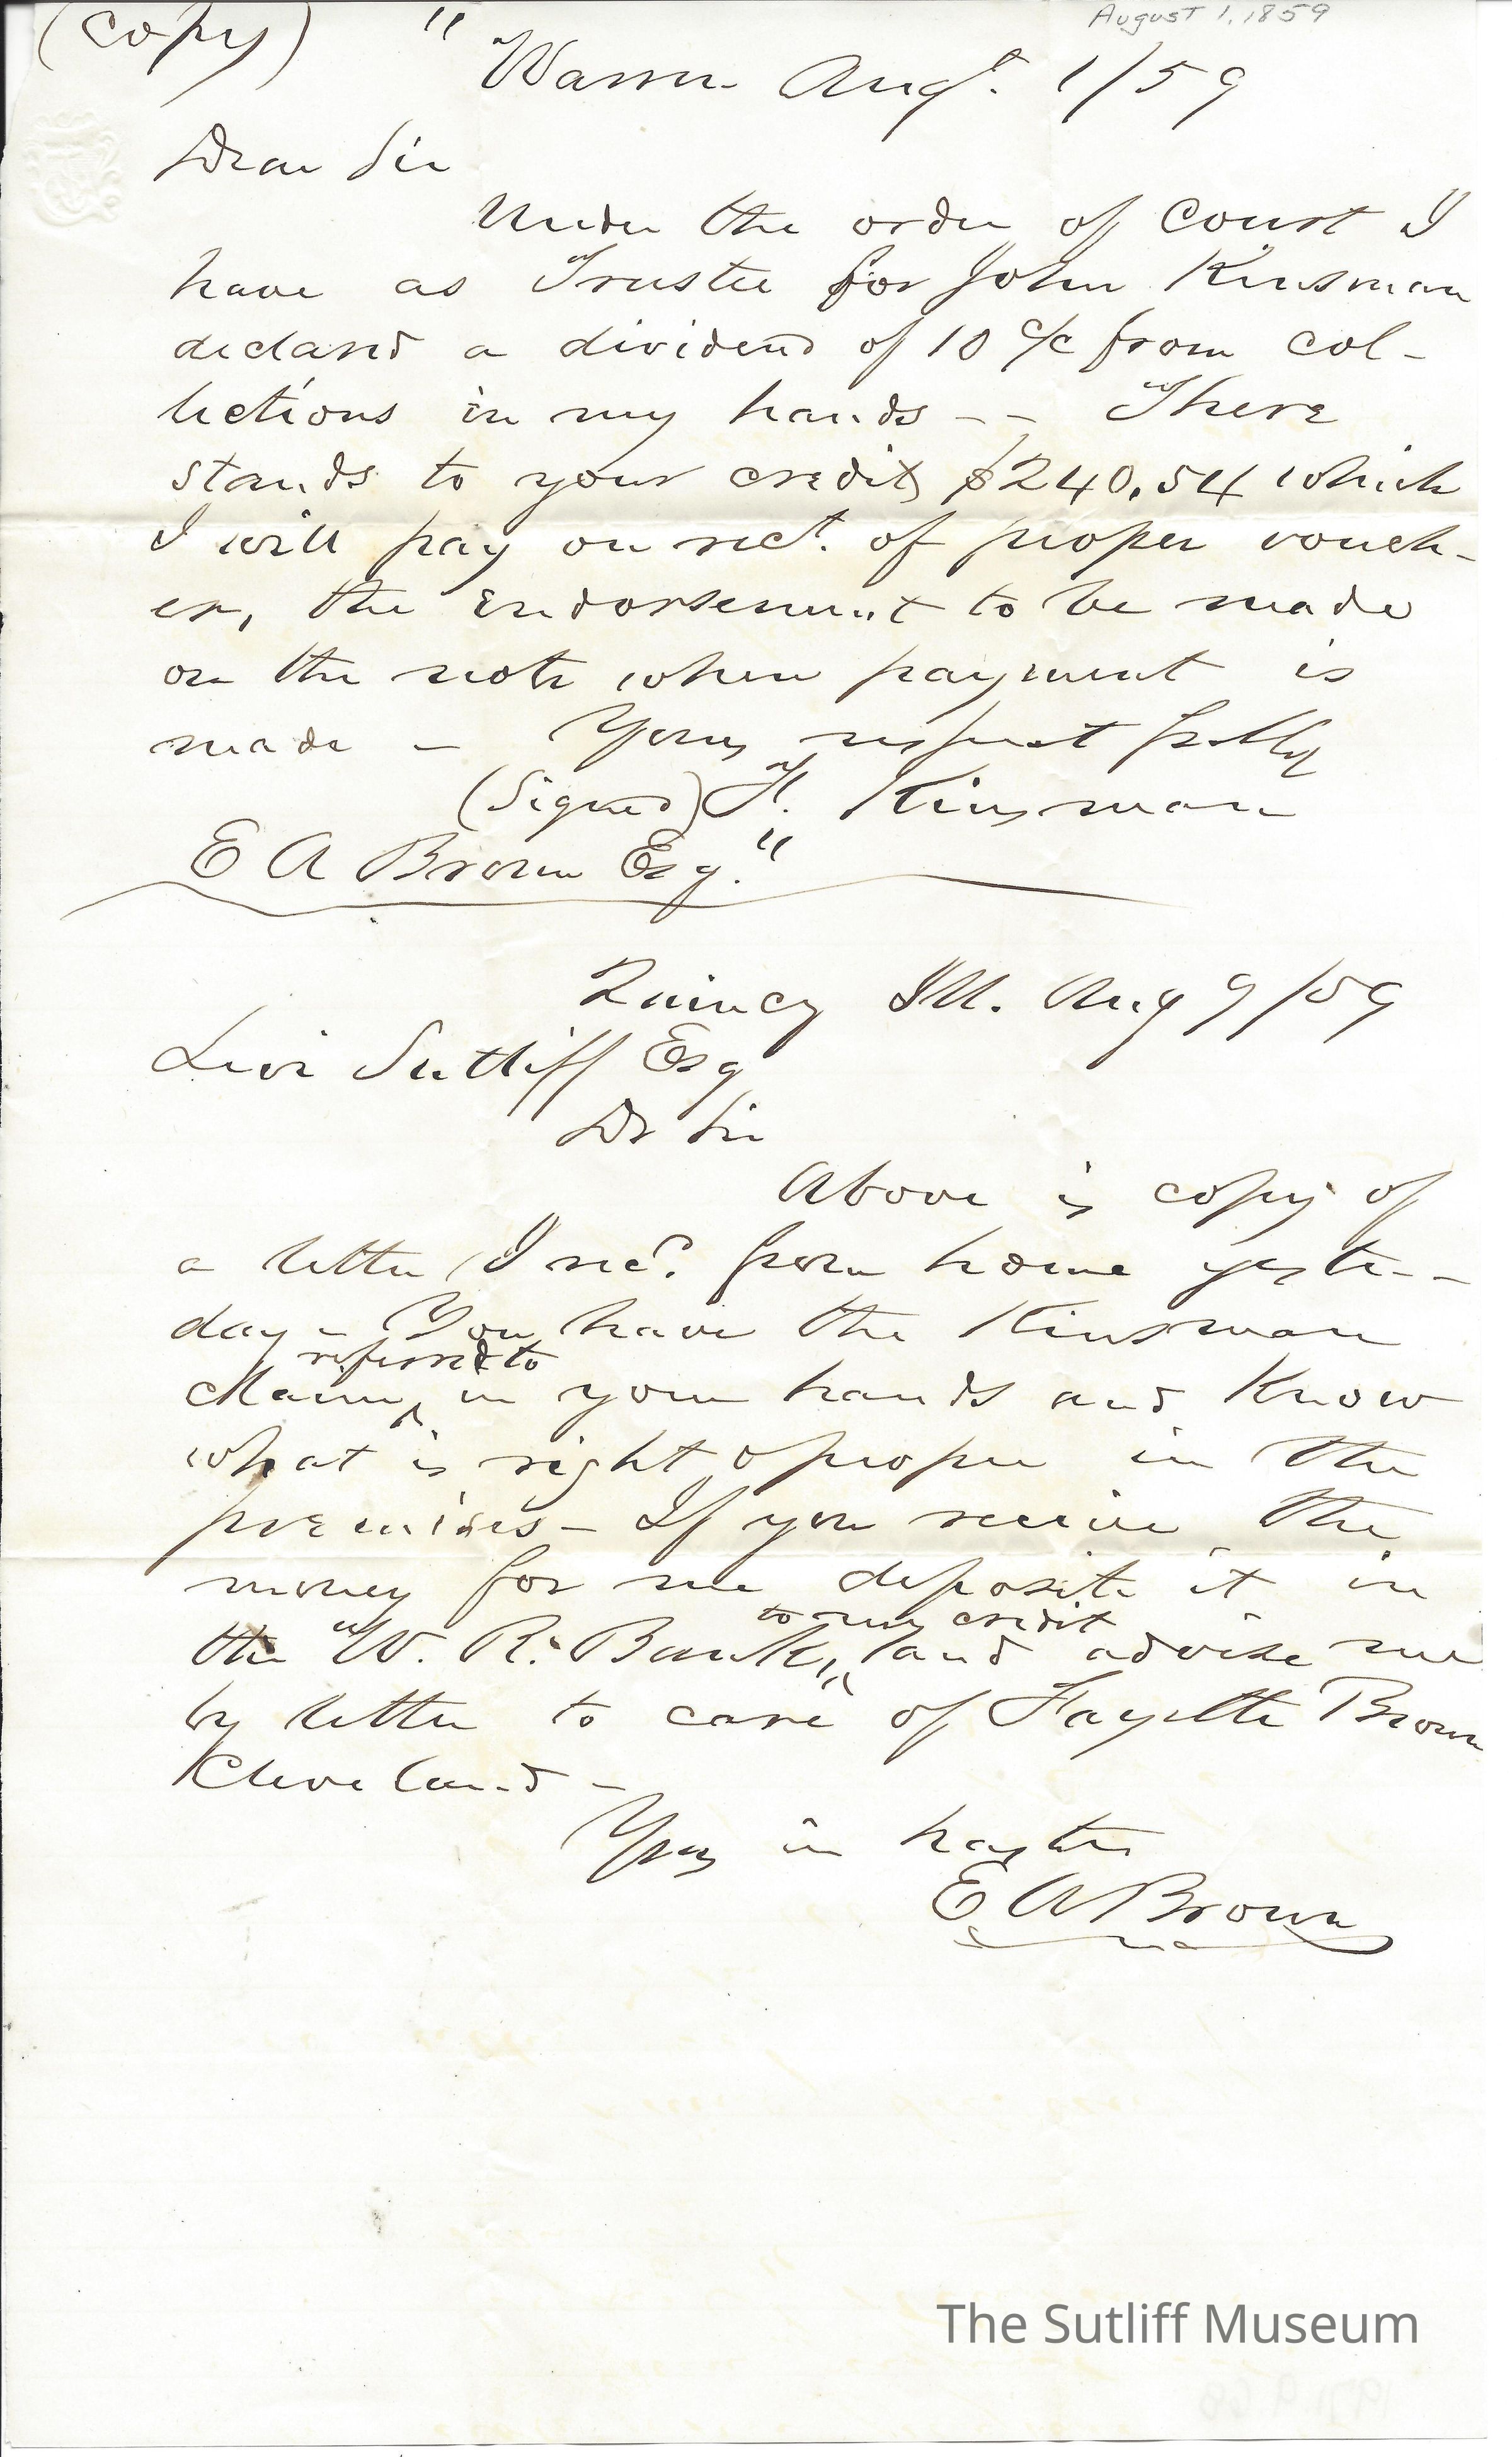 August 1, 1859
(copy) "Warren Augt. 1/59
Dear Sir
Under the order of Court I
have as Trustee for John Kinsman
declared a dividend of 10 % from col-
lections in my hands -- There
stands to your credit $240.54 which
I will pay on rect. of proper vouch-
er, the endorsement to be made
on the note when payment is
made - Yours respectfully
(Signed) F. Kinsman
E A Brown Esq."
Quincy Ill. Aug 9/59
Levi Sutliff Esq
Dr Sir
Above is copy of
a letter I recd. from home yester-
day - You have the Kinsman
referred to
claim, in your hands and know
what is right & proper in the
premises - If you receive the
money for me deposite it in
to my credit
the "W. R. Bank," and advise me
by letter to care of Fayette Brown
Cleveland -
Yrs in haste
E A Brown
The Sutliff Museum